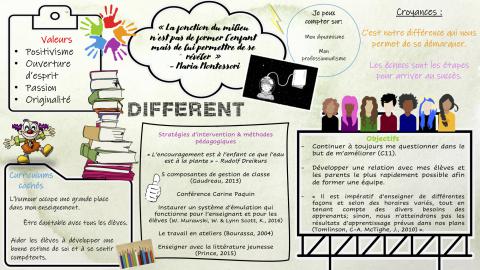 Valeurs
• Positivisme
• Ouverture
d'esprit
• Passion
• Originalité
« La fonction du milieu
n'est pas de former l'enfant
mais de lui permettre de se
révéler »
- Maria Montessori
Je peux
compter sur:
Mon dynamisme
Mon
professionnalisme
Croyances :
C'est notre différence qui nous
permet de se démarquer.
Les échecs sont les étapes
pour arriver au succès.
DIFFERENT
Curriculums
cachés
L'humour occupe une grande place
dans mon enseignement.
Être équitable avec tous les élèves.
Aider les élèves à développer une
bonne estime de soi et à se sentir
compétents.
Stratégies d'intervention & méthodes
pédagogiques
« L'encouragement est à l'enfant ce que l'eau
est à la plante » - Rudolf Dreikurs
5 composantes de gestion de classe
(Gaudreau, 2015)
Conférence Carine Paquin
Instaurer un système d'émulation qui
fonctionne pour l'enseignante et pour les
élèves (W. Murawski, W. & Lynn Scott, K., 2016)
Le travail en ateliers (Bourassa, 2004)
Enseigner avec la littérature jeunesse
(Prince, 2015)
Objectifs
- Continuer à toujours me questionner dans le
but de m'améliorer (C11).
- Développer une relation avec mes élèves et
les parents le plus rapidement possible afin
de former une équipe.
- « Il est impératif d'enseigner de différentes
façons et selon des horaires variés, tout en
tenant compte des divers besoins des
apprenants; sinon, nous n'atteindrons pas les
résultats d'apprentissage prévus dans nos plans
(Tomlinson, C-A. McTighe, J., 2010) ».